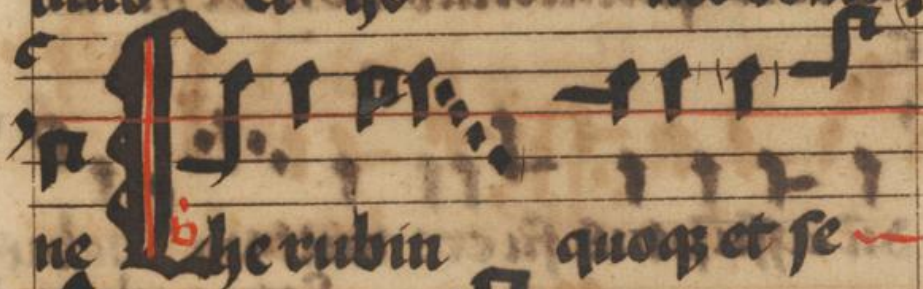 ne Cherubin quoqꝫ et se